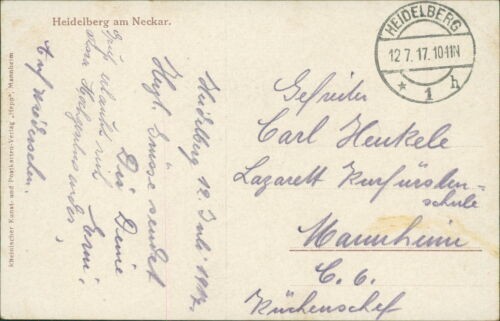 Heidelberg am Neckar.
HEIDELBERG
12.7.17.10-11N
* 1 h
Rheinischer Kunst- und Postkarten-Verlag „Hepp", Mannheim
Heidelberg 12. Juli 1917.
Herzl. Grüsse sendet
Dir Deine
Auf Wiedersehen.
Gefreiter
Carl Henkele
Lazarett Kurfürsten-
schule
Mannheim
C. 6.
Küchenschef